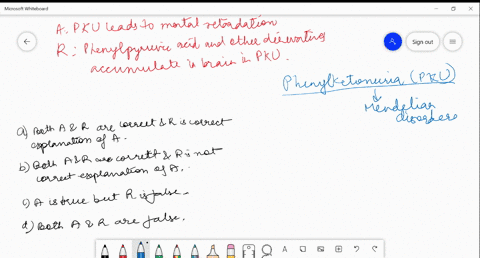 Microsoft Whiteboard
A. PKU leads to mental retardation
R: Phenylpyruvic acid and other derivatives
accumulate in brain in PKU.
Sign out
Phenylketonuria (PKU)
Mendelian
disorders
a) Both A & R are correct & R is correct
explanation of A.
b) Both A & R are correct & R is not
correct explanation of A.
c) A is true but R is false.
d) Both A & R are false.